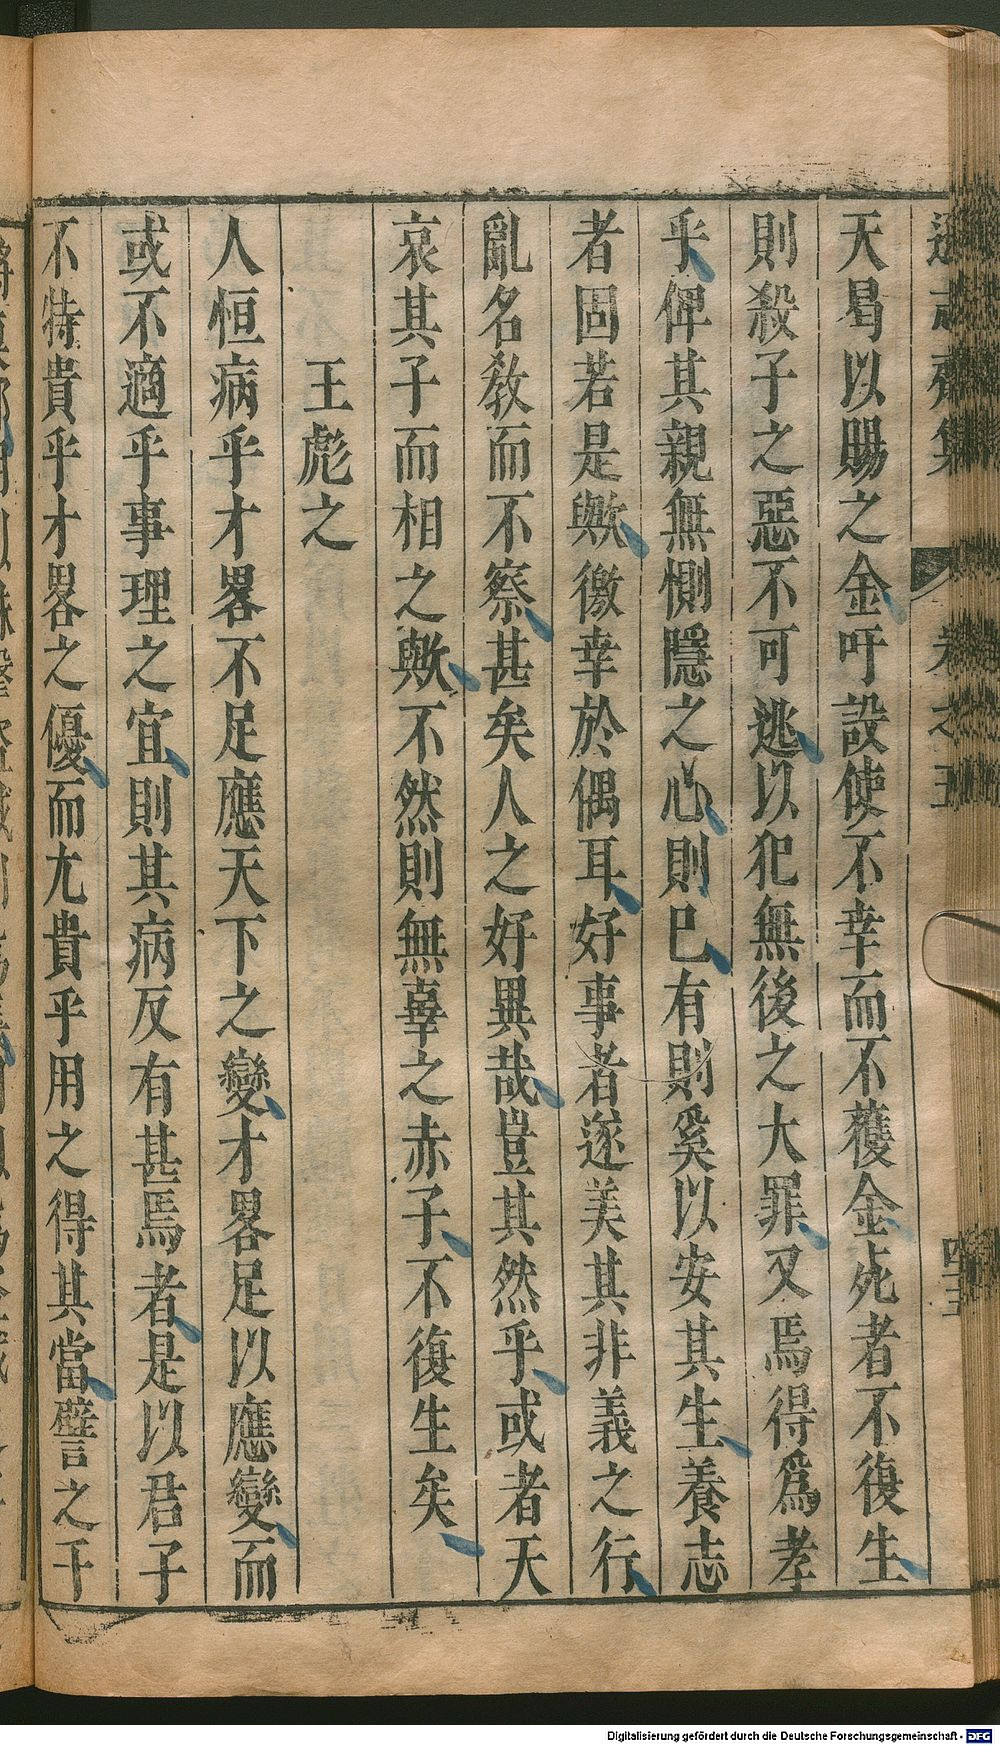 遜志齋集 卷之五 四三
天曷以賜之金吁設使不幸而不獲金死者不復生
則殺子之惡不可逃以犯無後之大罪又焉得爲孝
乎俾其親無惻隱之心則已有則奚以安其生養志
者固若是歟徼幸於偶耳好事者遂美其非義之行
亂名敎而不察甚矣人之好異哉豈其然乎或者天
哀其子而相之歟不然則無辜之赤子不復生矣
王彪之
人恒病乎才畧不足應天下之變才畧足以應變而
或不適乎事理之宜則其病反有甚焉者是以君子
不特貴乎才畧之優而尤貴乎用之得其當譬之干
Digitalisierung gefördert durch die Deutsche Forschungsgemeinschaft - DFG